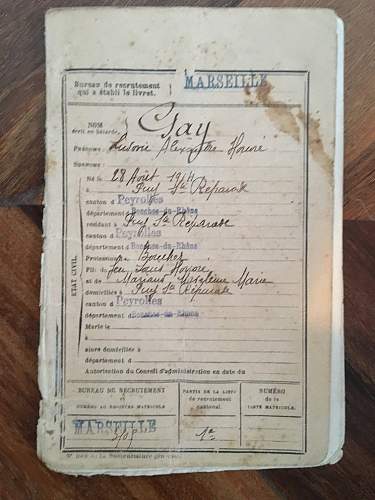 Bureau de recrutement
qui a établi le livret. MARSEILLE
NOM
écrit en bâtarde. Gay
Prénoms: Alexandre Honoré
Surnoms:
Né le 28 Août 1914
à Puy Ste Réparade
canton d Peyrolles
département d Bouches-du-Rhône
résidant à Puy Ste Réparade
canton d Peyrolles
département d Bouches-du-Rhône
Profession d Boucher
Fils de feu Louis Honoré
et de Magdeleine Marie
domiciliés à Puy Ste Réparade
canton d Peyrolles
département d Bouches-du-Rhône
Marié le
à
alors domiciliée à
département d
Autorisation du Conseil d'administration en date du
ÉTAT CIVIL.
BUREAU DE RECRUTEMENT
ET
NUMÉRO AU REGISTRE MATRICULE.
MARSEILLE
PARTIE DE LA LISTE
de recrutement
national.
1re
NUMÉRO
de la
CARTE MATRICULE.